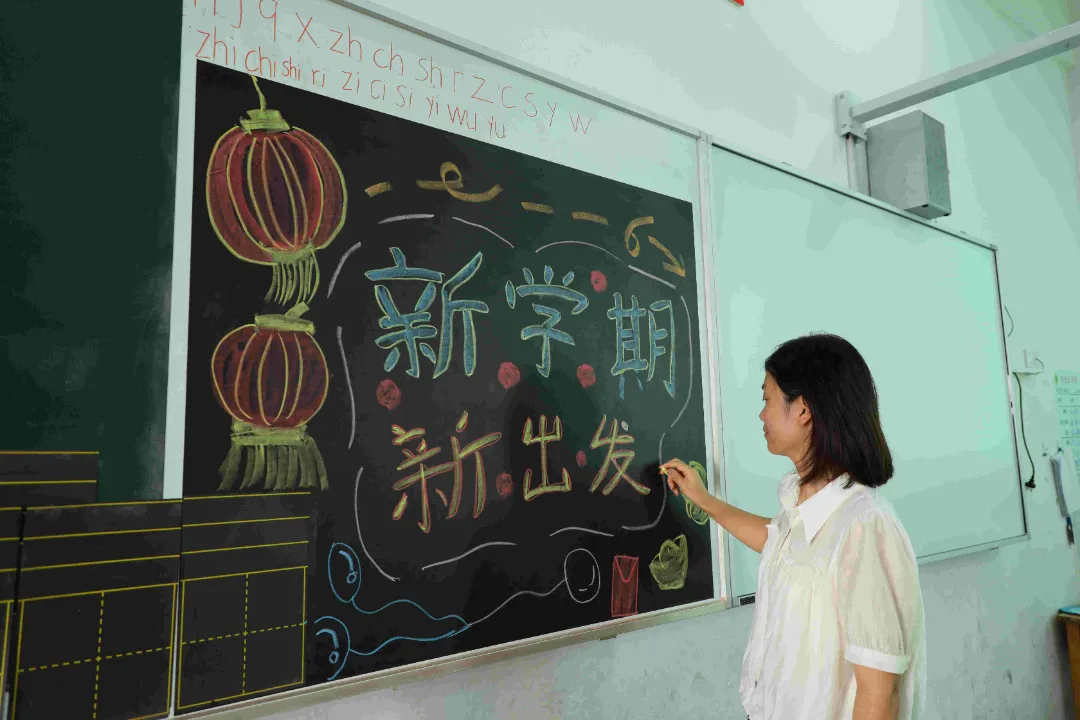 j q x zh ch sh r z c s y w
zhi chi shi ri zi ci si yi wu yu
新学期
新出发